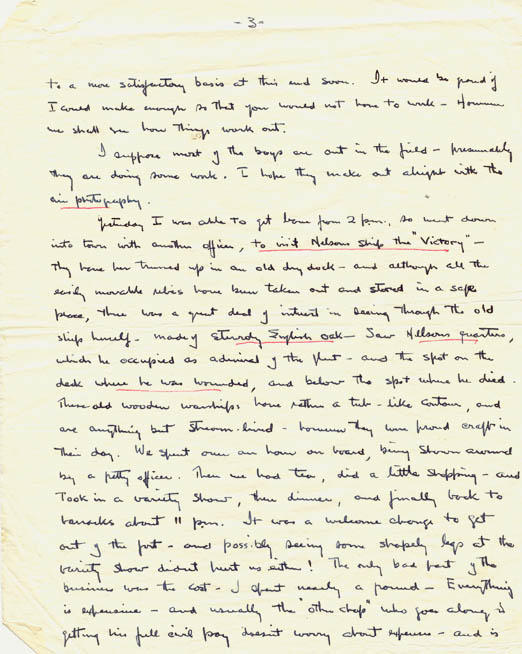 - 3 -
to a more satisfactory basis at this end soon. It would be good if
I could make enough so that you would not have to work - However
we shall see how things work out.
I suppose most of the boys are out in the field - presumably
they are doing some work. I hope they make out alright with the
air photography.
Yesterday I was able to get leave from 2 p.m., so went down
into town with another officer, to visit Nelsons ship the "Victory" -
They have her trimmed up in an old dry dock - and although all the
easily movable relics have been taken out and stored in a safe
place, there was a great deal of interest in seeing through the old
ship herself - made of sturdy English oak - Saw Nelsons quarters,
which he occupied as admiral of the fleet - and the spot on the
deck where he was wounded, and below the spot where he died.
These old wooden warships have rather a tub-like contour, and
are anything but stream-lined - however they were proud craft in
their day. We spent over an hour on board, being shown around
by a petty officer. Then we had tea, did a little shopping - and
took in a variety show, then dinner, and finally back to
barracks about 11 pm. It was a welcome change to get
out of the fort - and possibly seeing some shapely legs at the
variety show didn't hurt us either! The only bad part of the
business was the cost - I spent nearly a pound - Everything
is expensive - and usually the "other chap" who goes along is
getting his full civil pay doesn't worry about expenses - and is